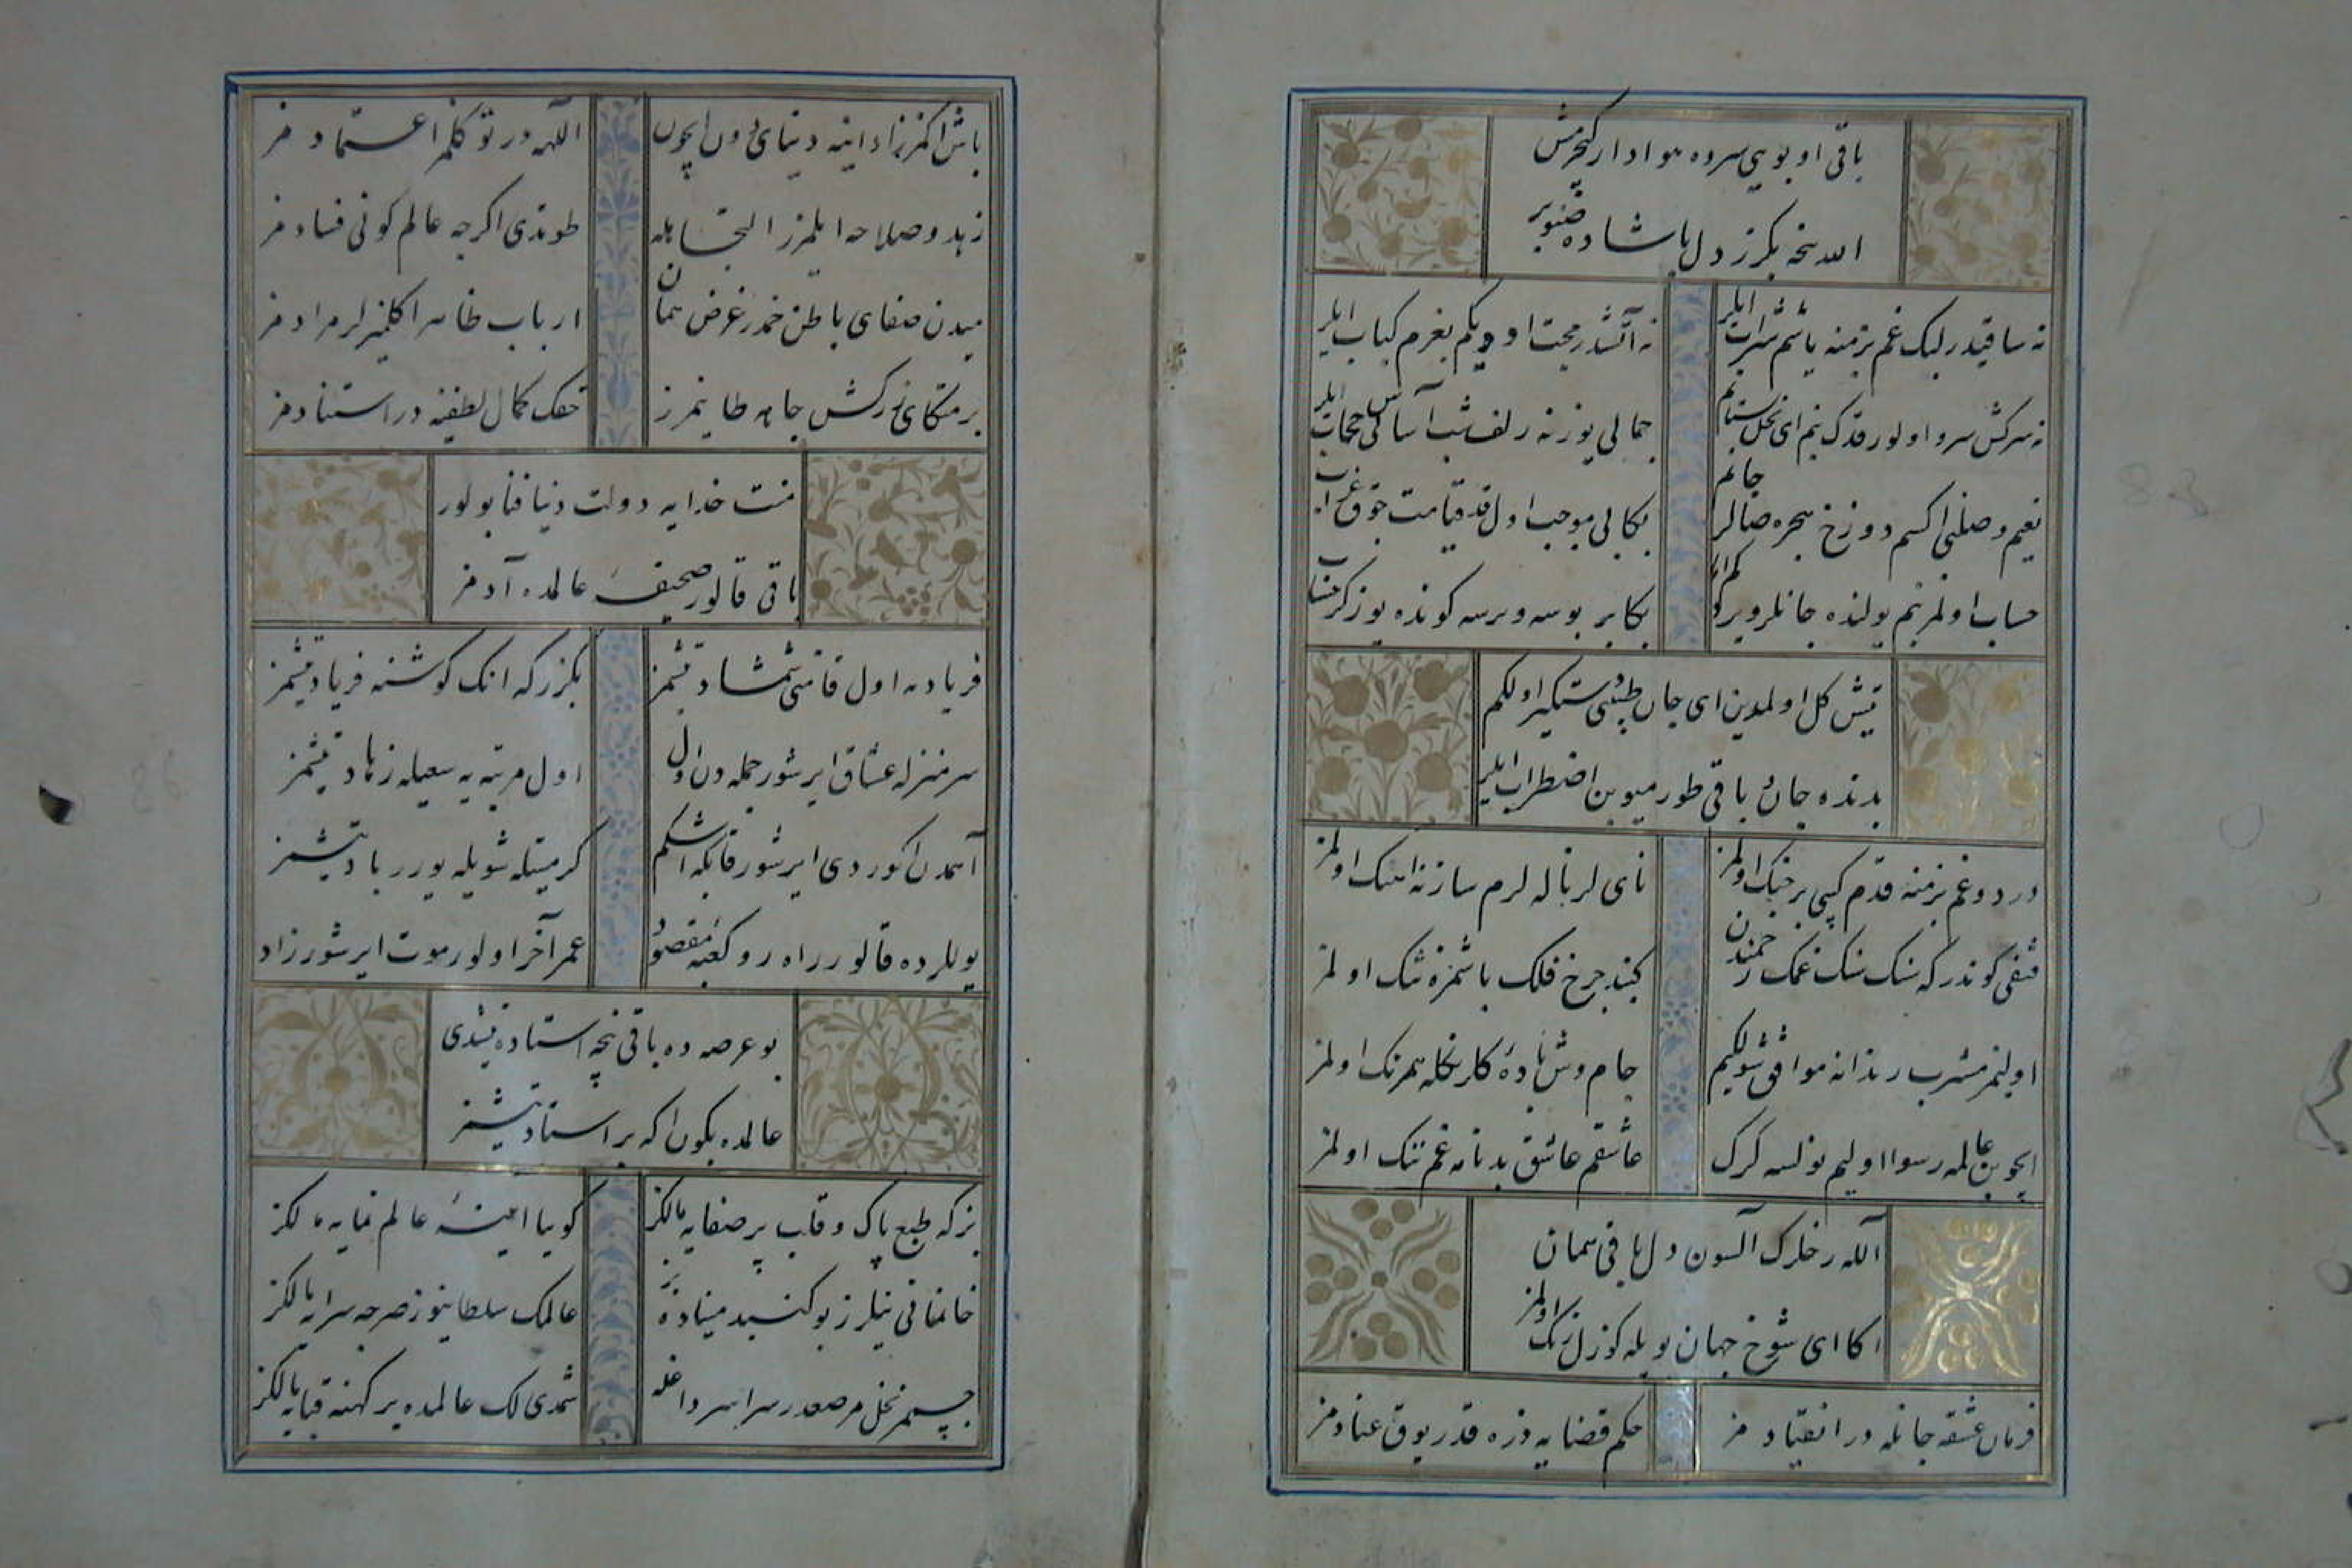 باقی او بویی سروه هوادار كیچرمش
الله نجه بكرز دل ناشاده صنوبر
نه ساقیدر لبك غم بزمنه یاشم شراب ایلر
نه آتشدر محبت اودیكم بغرم كباب ایلر
نه سركش سرو اولور قدك بنم ای نخل بستانم
جمالی یوزنه زلف شب آساسن حجاب ایلر
نعیم وصلنی اكسم دوزخ هجره صالر جانم
بكا لی موجب اول قد قیامت چوق عذاب ایلر
حساب اولمز بنم یولنده جانلر ویردوكم اما
بكا بر بوسه ویرسه كونده یوز كز حساب ایلر
تیش كل اولمدین ای جان طبیبی دستكیر اولكم
بدنده جان باقی طورمیوبن اضطراب ایلر
درد و غم بزمنه قدم كیبی بر چنك اولمز
نای لر ناله لرم سازنه آهنك اولمز
سقفی كوندركه سنك سنك غمك رخنه سندن
كنبد چرخ فلك باشمزه تنك اولمز
اولنمز مشرب رندانه موافق شول كیم
جام وش باده كلرنكله همرنك اولمز
ایچوبن عالمه رسوا اولیم نولسه كرك
عاشقم عاشق بدنامه غم ننك اولمز
آلله رخلرك آلسون دل باقی همان
اكا ای شوخ جهان بویله كوزل رنك اولمز
فرمان عشقه جانله در انقیادمز
حكم قضایه ذره قدر یوق عنادمز
باش اكمزز ادانیه دنیای دون ایچون
اللهه در توكلمز اعتمادمز
زهد و صلاحه ایلمزز التجا هله
طوتدی اكرچه عالم كونی فسادمز
میدن صفای باطن خمدر غرض همان
ارباب ظاهر اكلایمز لر مرادمز
بر متكای زركش جاهه طاینمزز
حقك كمال لطفینه در استنادمز
منت خدایه دولت دنیا فنا بولور
باقی قالور صحیفه عالمده آدمز
فریاده اول قامتی شمشاد یتشمز
بكزر كه انك كوشنه فریاد یتشمز
سر منزله عشاق ایرشور جمله دن اول
اول مرتبه یه سعیله زهاد یتشمز
آهمدن اكوردی ایرشور قانله اشكم
كرمیتله شویله یورر باد یتشمز
یوللرده قالور راه رو كعبه مقصود
عمر آخر اولور موت ایرشور زاد
بو عرصه ده باقی نچه استاده یتشدی
عالمده بكون اكه بر استاد یتشمز
بز كه طبع پاك و قلب پر صفایه مالكز
كوییا آیینه عالم نمایه مالكز
خانمانی نیلرز بو كنبد مینا ده بز
عالمك سلطانیوز صرچه سرایه مالكز
جسممز نخل مرصعدر سراسر داغله
شمدی لك عالمده بر كهنه قبایه مالكز